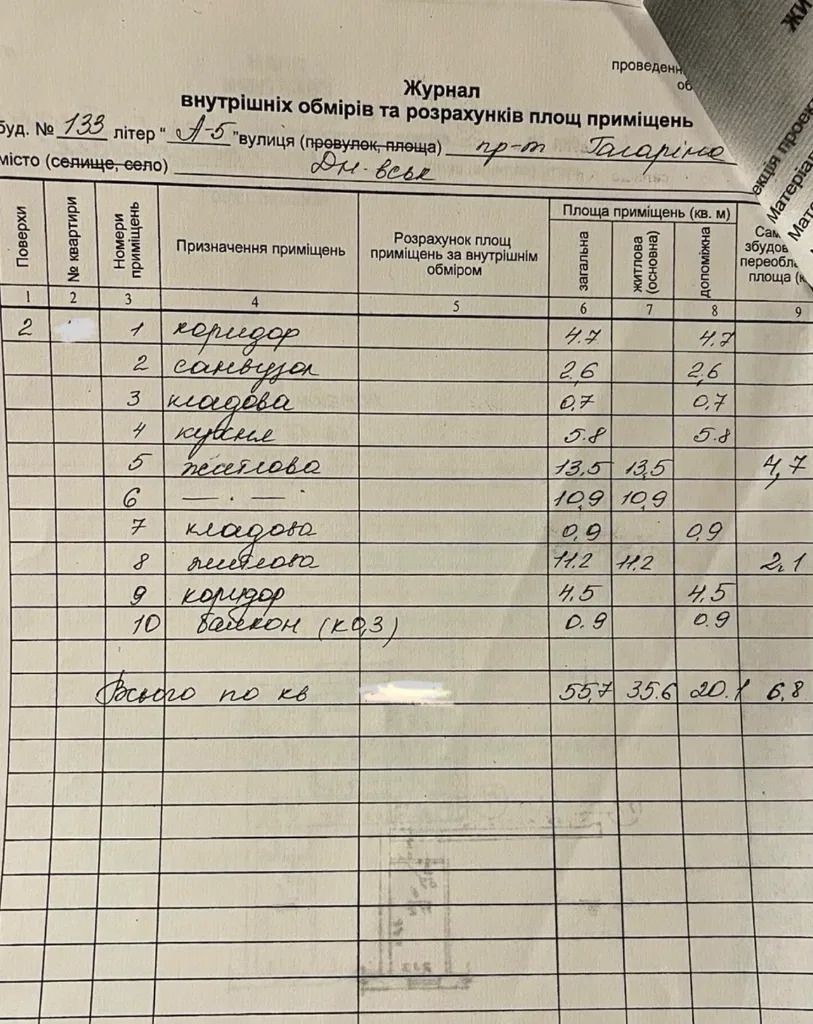 проведенн
об
Журнал
внутрішніх обмірів та розрахунків площ приміщень
буд. № 133 літер " А-5 " вулиця (провулок, площа) пр-т Гагаріна
місто (селище, село) Дн-вськ
Поверхи № квартири Номери приміщень Призначення приміщень Розрахунок площ приміщень за внутрішнім обміром Площа приміщень (кв. м) загальна житлова (основна) допоміжна Сам збудов переобл площа (к
1 2 3 4 5 6 7 8 9
2 1 коридор 4.7 4.7
2 санвузол 2,6 2,6
3 кладова 0,7 0,7
4 кухня 5.8 5.8
5 житлова 13,5 13,5 4,7
6 — · — · 10,9 10,9
7 кладова 0,9 0,9
8 житлова 11.2 11.2 2,1
9 коридор 4,5 4,5
10 балкон (к0,3) 0.9 0.9
Всього по кв 55,7 35.6 20.1 6,8
жи
екція проек
Матеріал
Мате